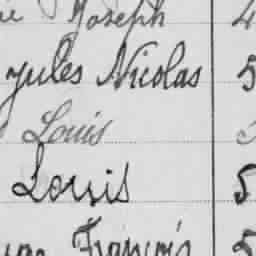 Joseph 4
Jules Nicolas 5
Louis
Louis 5
François 5